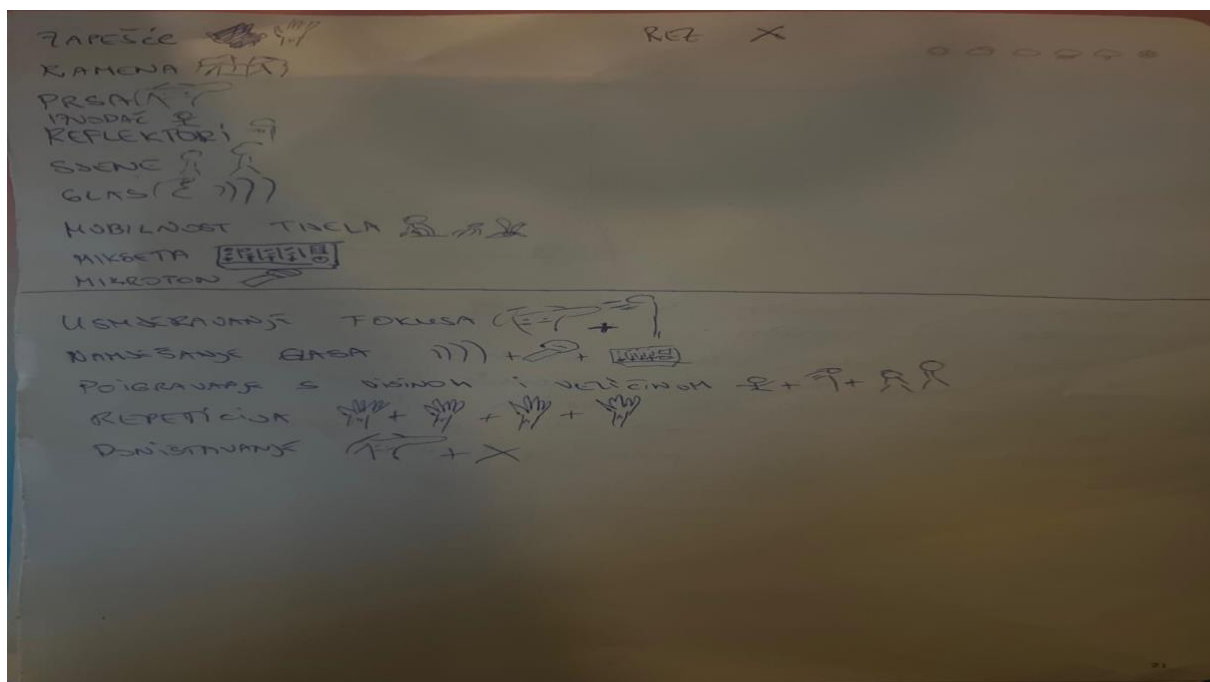 ZAPEŠĆE
REZ X
RAMENA
PRSA
IZVOĐAČ
REFLEKTORI
SJENE
GLAS
MOBILNOST TIJELA
MIKSETA
MIKROFON
USMJERAVANJE FOKUSA +
NAMJEŠANJE GLASA + +
POIGRAVANJE S VISINOM I VELIČINOM + +
REPETICIJA + + +
PONIŠTAVANJE + X